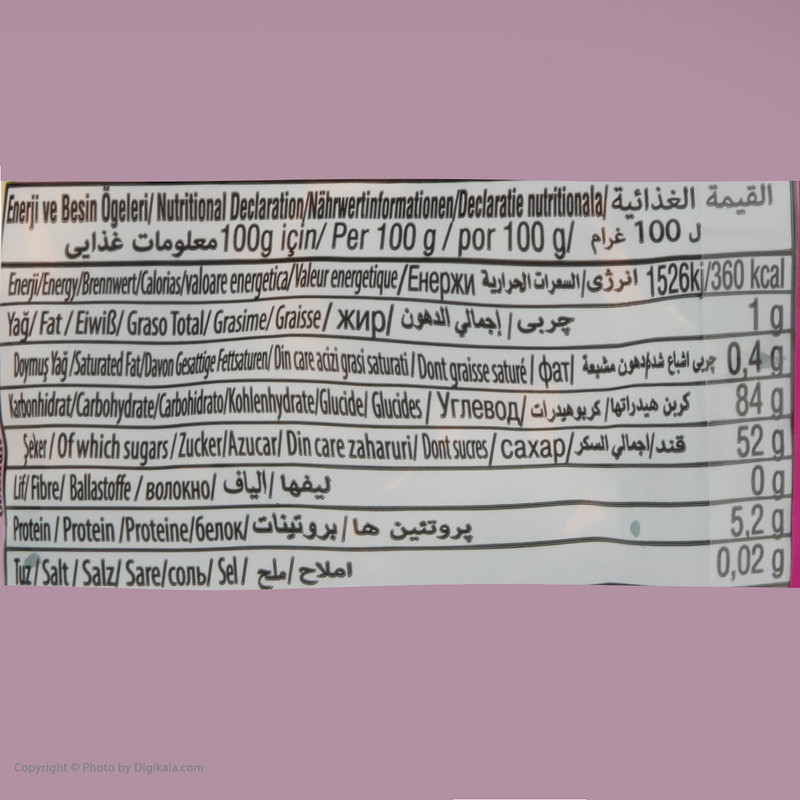 Enerji ve Besin Ögeleri/ Nutritional Declaration/Nährwertinformationen/Declaratie nutritionala/ القيمة الغذائية
ل 100 غرام /100g için/ Per 100 g / por 100 g معلومات غذایی
Enerji/Energy/Brennwert/Calorias/valoare energetica/Valeur energetique/Енержи انرژی/السعرات الحرارية 1526kj/360 kcal
Yağ/ Fat / Eiwiß/ Graso Total/ Grasime/ Graisse/ жир/ چربی / إجمالي الدهون 1 g
Doymuş Yağ /Saturated Fat/Davon Gesattige Fettsaturen/ Din care acizi grasi saturati / Dont graisse saturé / фат/ چربی اشباع شده/دهون مشبعة 0,4 g
Karbonhidrat/Carbohydrate/Carbohidrato/Kohlenhydrate/Glucide/ Glucides / Углевод/ كربن هيدراتها/ كربوهيدرات 84 g
Şeker / Of which sugars / Zucker/Azucar/ Din care zaharuri/ Dont sucres/ сахар/ قند/اجمالي السكر 52 g
Lif/ Fibre/ Ballastoffe / волокно/ ليفها /الياف 0 g
Protein / Protein /Proteine/белок/ پروتئین ها /بروتينات 5,2 g
Tuz / Salt / Salz/ Sare/соль/ Sel / املاح/ملح 0,02 g
Copyright © Photo by Digikala.com